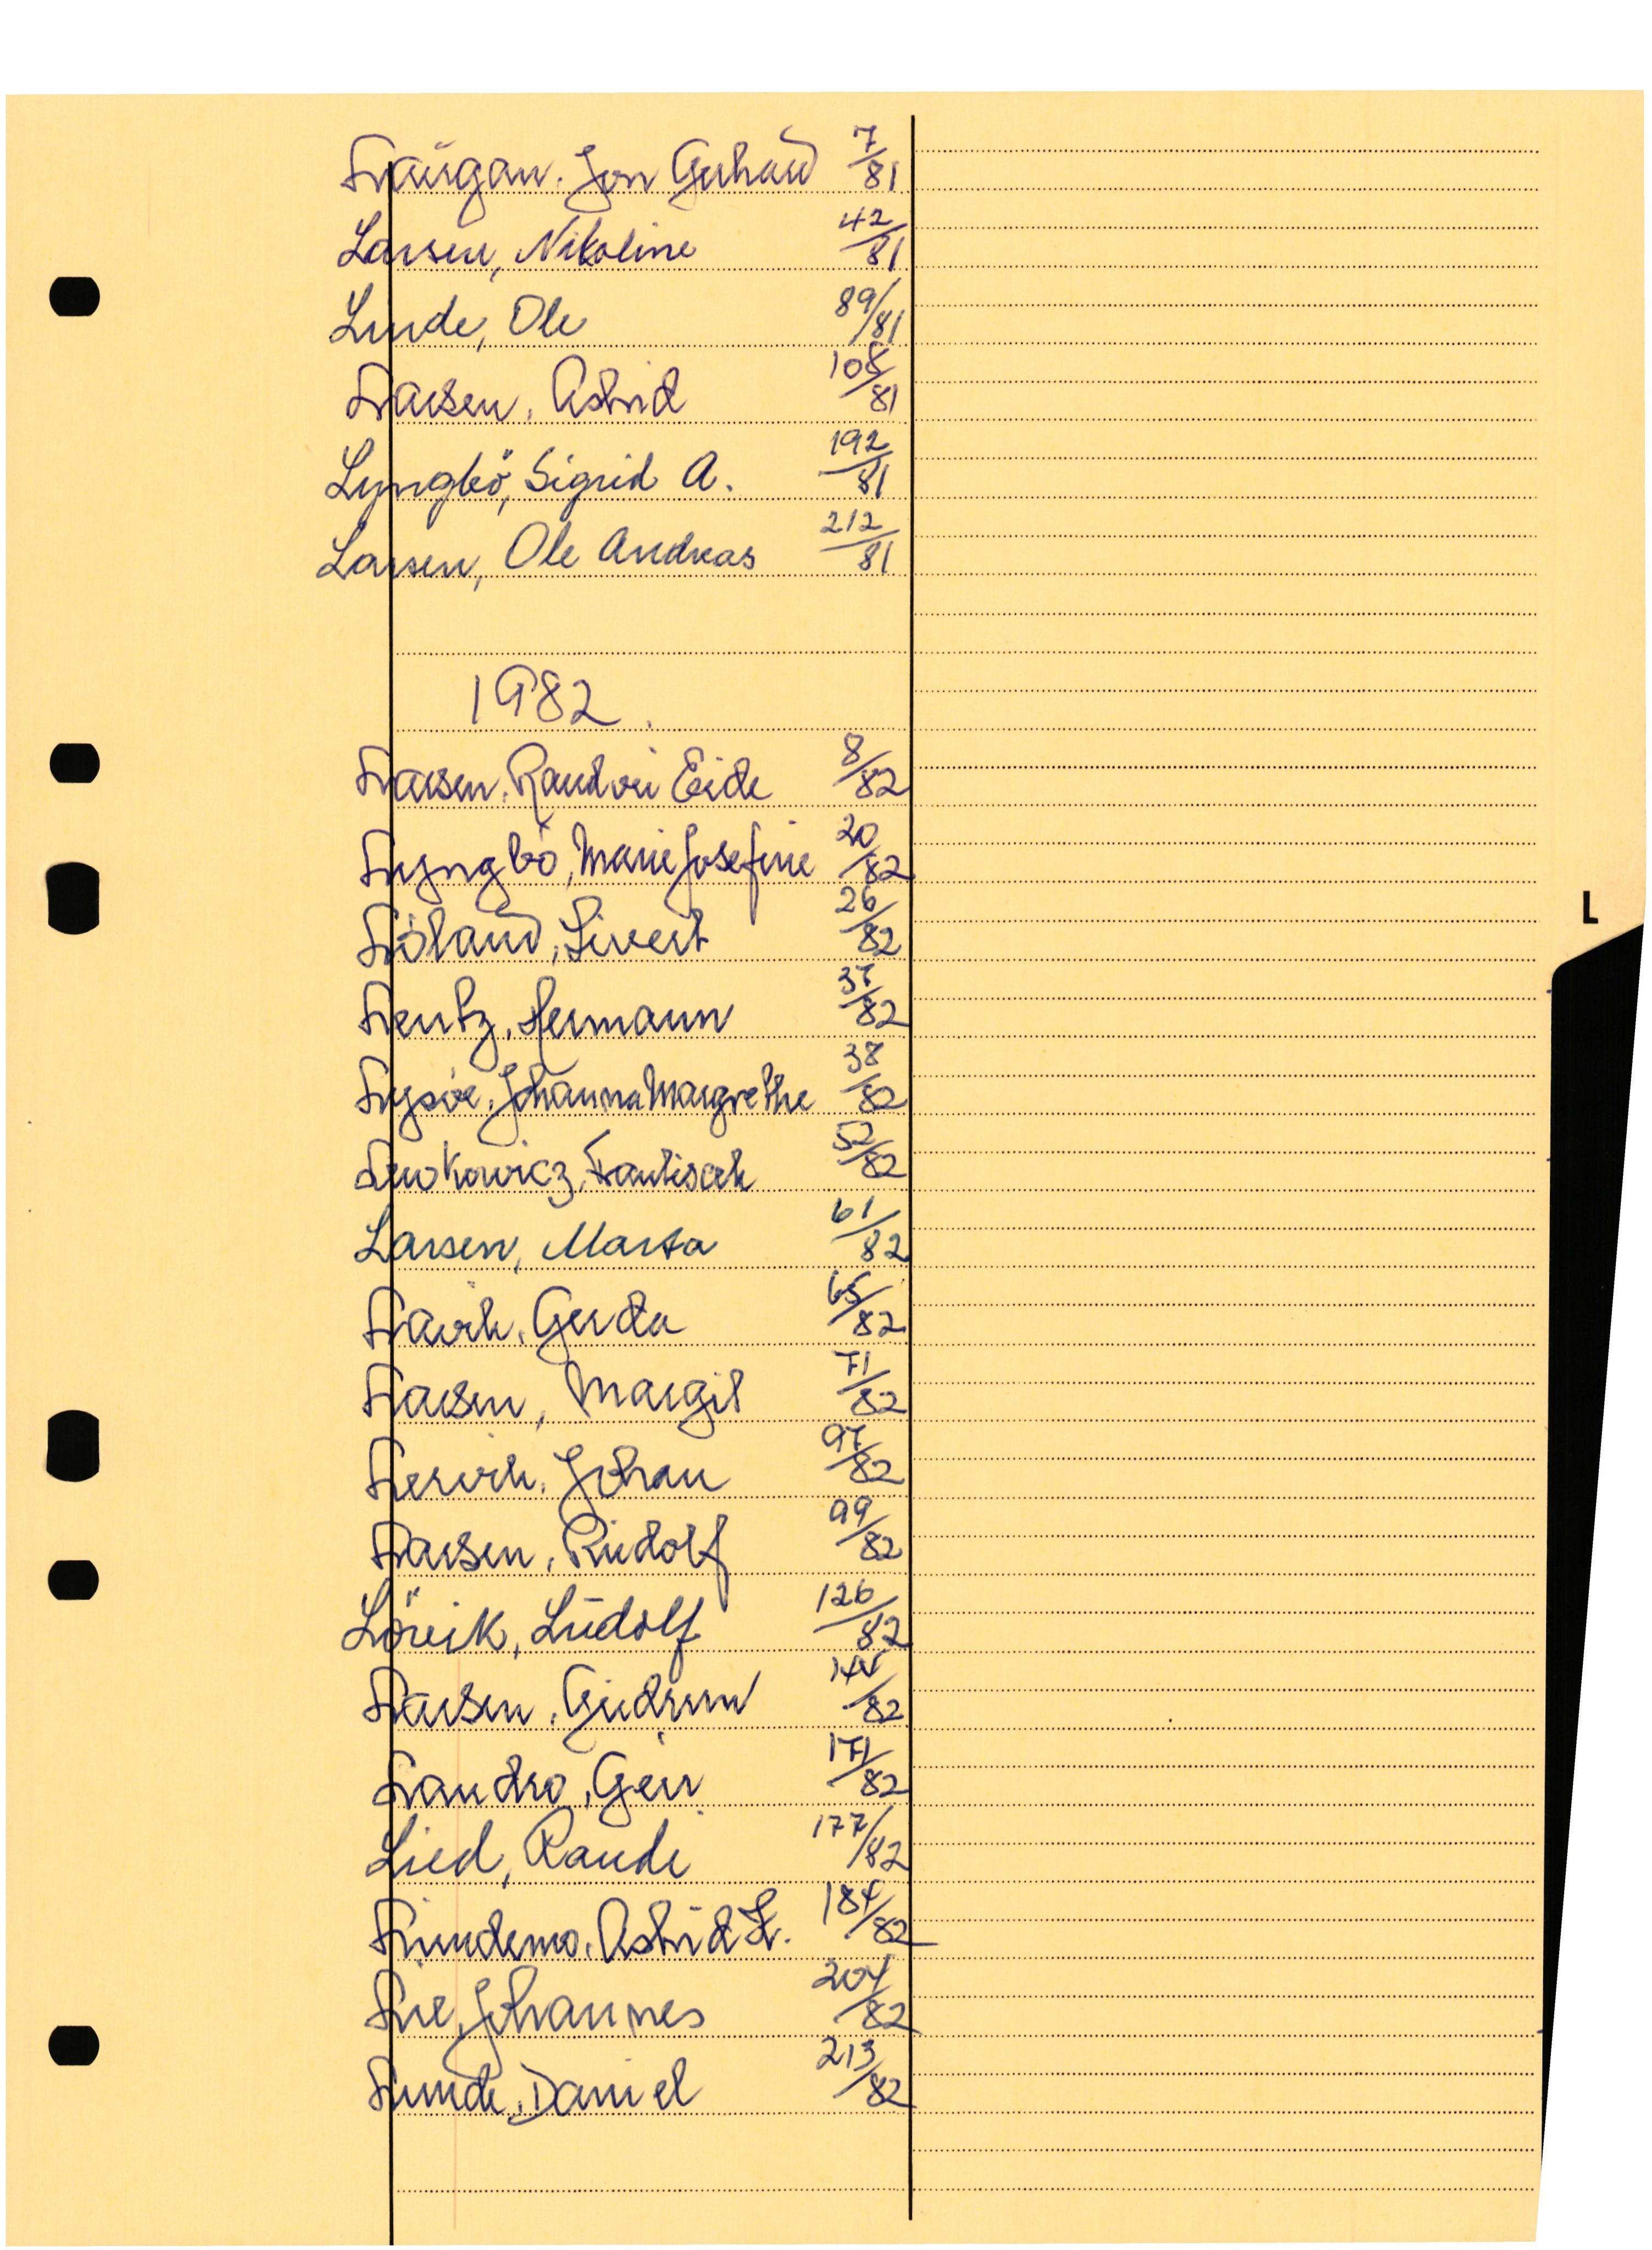 Laugan, Jon Gerhard 7/81
Larsen, Nikoline 42/81
Linde, Ole 89/81
Larsen, Astrid 108/81
Lyngbö, Sigrid A. 192/81
Larsen, Ole Andreas 212/81
1982.
Larsen, Randvei Eide 8/82
Lyngbö, Marie Josefine 20/82
Löland, Sivert 26/82
Lentz, Hermann 37/82
Lysöe, Johanna Margrethe 38/82
52/82
Larsen, Marta 61/82
Lavik, Gerda 65/82
Larsen, Margit 71/82
Lervik, Johan 97/82
Larsen, Rudolf 99/82
Lörvik, Ludolf 126/82
Larsen, Gudrun 144/82
Landro, Geir 171/82
Lied, Randi 177/82
Lundemo, Astrid L. 184/82
Lie, Johannes 204/82
Lunde, Daniel 213/82
L